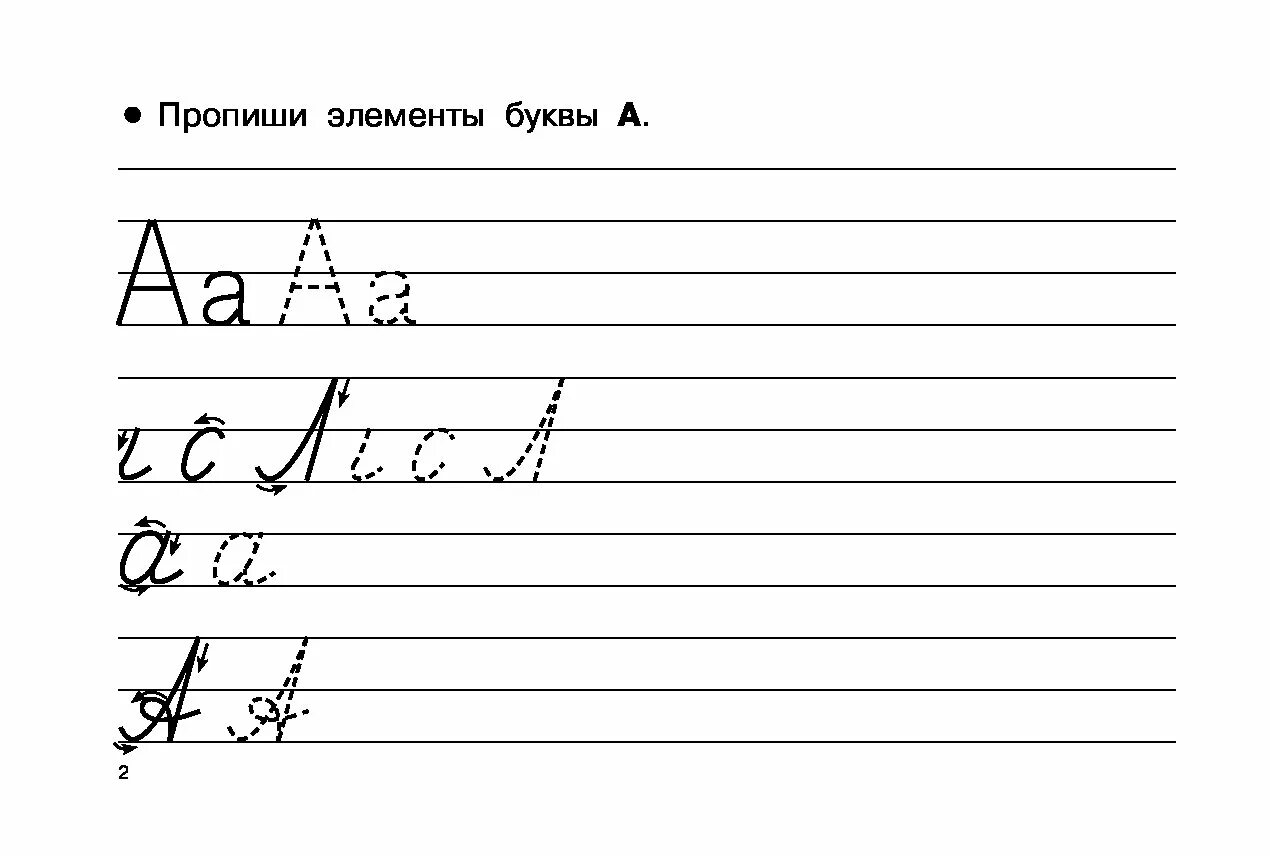 ● Пропиши элементы буквы А.
Аа Аа
и с Л и с Л
а а
А А
2